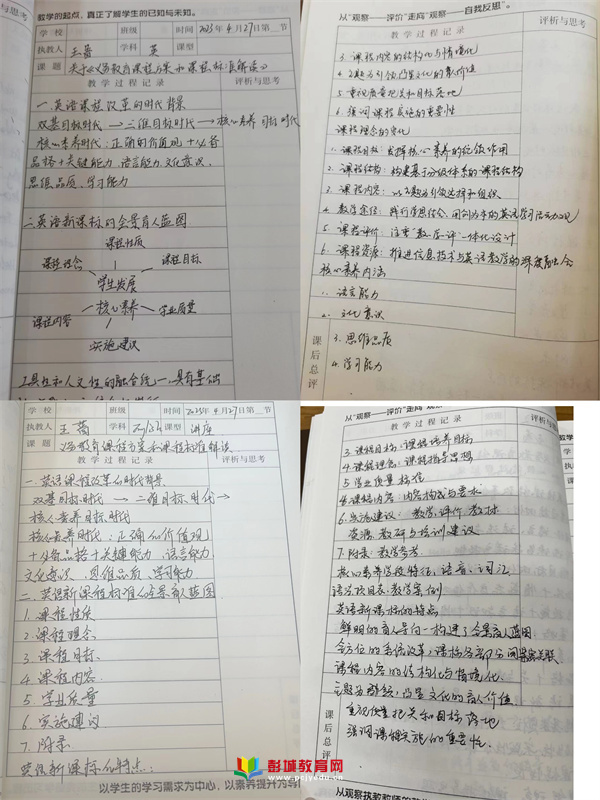 教学的起点，真正了解学生的已知与未知。
学校 班级 时间 2023年4月27日第 节
执教人 王蔷 学科 英 课型
课题 关于《义务教育课程方案和课程标准解读》
教学过程记录 评析与思考
一.英语课程改革的时代背景
双基目标时代→三维目标时代→核心素养目标时代
核心素养时代：正确的价值观+必备
品格+关键能力、语言能力、文化意识、
思维品质、学习能力
二.英语新课标的全景育人蓝图
课程性质
课程理念 课程目标
学生发展
核心素养 学业质量
课程内容
实施建议
1.工具性和人文性的融合统一,具有基础
从“观察——评价”走向“观察——自我反思”。
教学过程记录 评析与思考
3.课程内容的结构化与情境化
4.主题为引领凸显文化的育人价值
5.重视质量把关和目标落地
6.强调课程实施的重要性
课程理念的变化
1.课程目标：发挥核心素养的统领作用
2.课程结构：构建基于分级体系的课程结构
3.课程内容：以主题为引领选择和组织
4.教学途径：践行学思结合、用创为本的英语学习活动观
5.课程评价：注重“教学评”一体化设计
6.课程资源：推进信息技术与英语教学的深度融合
核心素养内涵
1.语言能力
2.文化意识
3.思维品质
4.学习能力
课后总评
学校 班级 时间 2023年4月27日第 节
执教人 王蔷 学科 English 课型 讲座
课题 义务教育课程方案和课程标准解读
教学过程记录 评析与思考
一.英语课程改革的时代背景
双基目标时代→三维目标时代→
核心素养目标时代
核心素养时代：正确的价值观
+必备品格+关键能力、语言能力
文化意识、思维品质、学习能力
二.英语新课程标准全景育人蓝图
1.课程性质
2.课程理念
3.课程目标
4.课程内容
5.学业质量
6.实施建议
7.附录
英语新课标的特点：
以学生的学习需求为中心，以素养提升为导
从“观察——评价”走向“观察
教学过程记录
3.课程目标：课程培养目标
4.课程理念：课程指导思想
5.学业质量标准
课程内容：内容构成与要求
6.实施建议：教学、评价、教材
资源、教研与培训建议
7.附录：教学参考
核心素养学段特征、语音、词汇
语法项目表、教学案例
英语新课标的特点
鲜明的育人导向—构建了全景育人蓝图
全方位的系统改革，课标各部分间紧密关联
课程内容的结构化与情境化
主题为引领，凸显文化的育人价值
重视质量把关和目标落地
强调课程实施的重要性
课后总评
彭城教育网
www.pcjy.com
从观察执教教师的